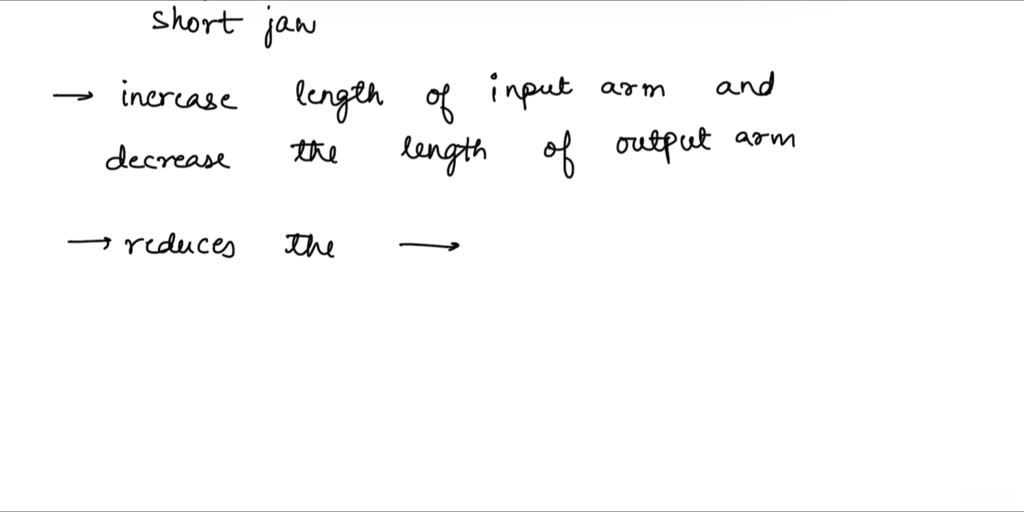 short jaw
→ increase length of input arm and
decrease the length of output arm
→ reduces the →